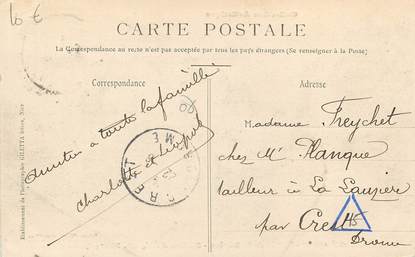 10 €
CARTE POSTALE
La Correspondance au recto n'est pas acceptée par tous les pays étrangers (Se renseigner à la Poste)
Correspondance
Adresse
Amitiés à toute la famille
Charlotte et Léopold
Etablissements de Photographie GILETTA frères, Nice
CREST
Madame Freychet
chez Mr Planque
tailleur à La Lauzière
par Crest
Drome
45